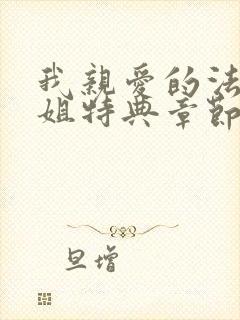 我親愛的法
姐特典章節
旦增